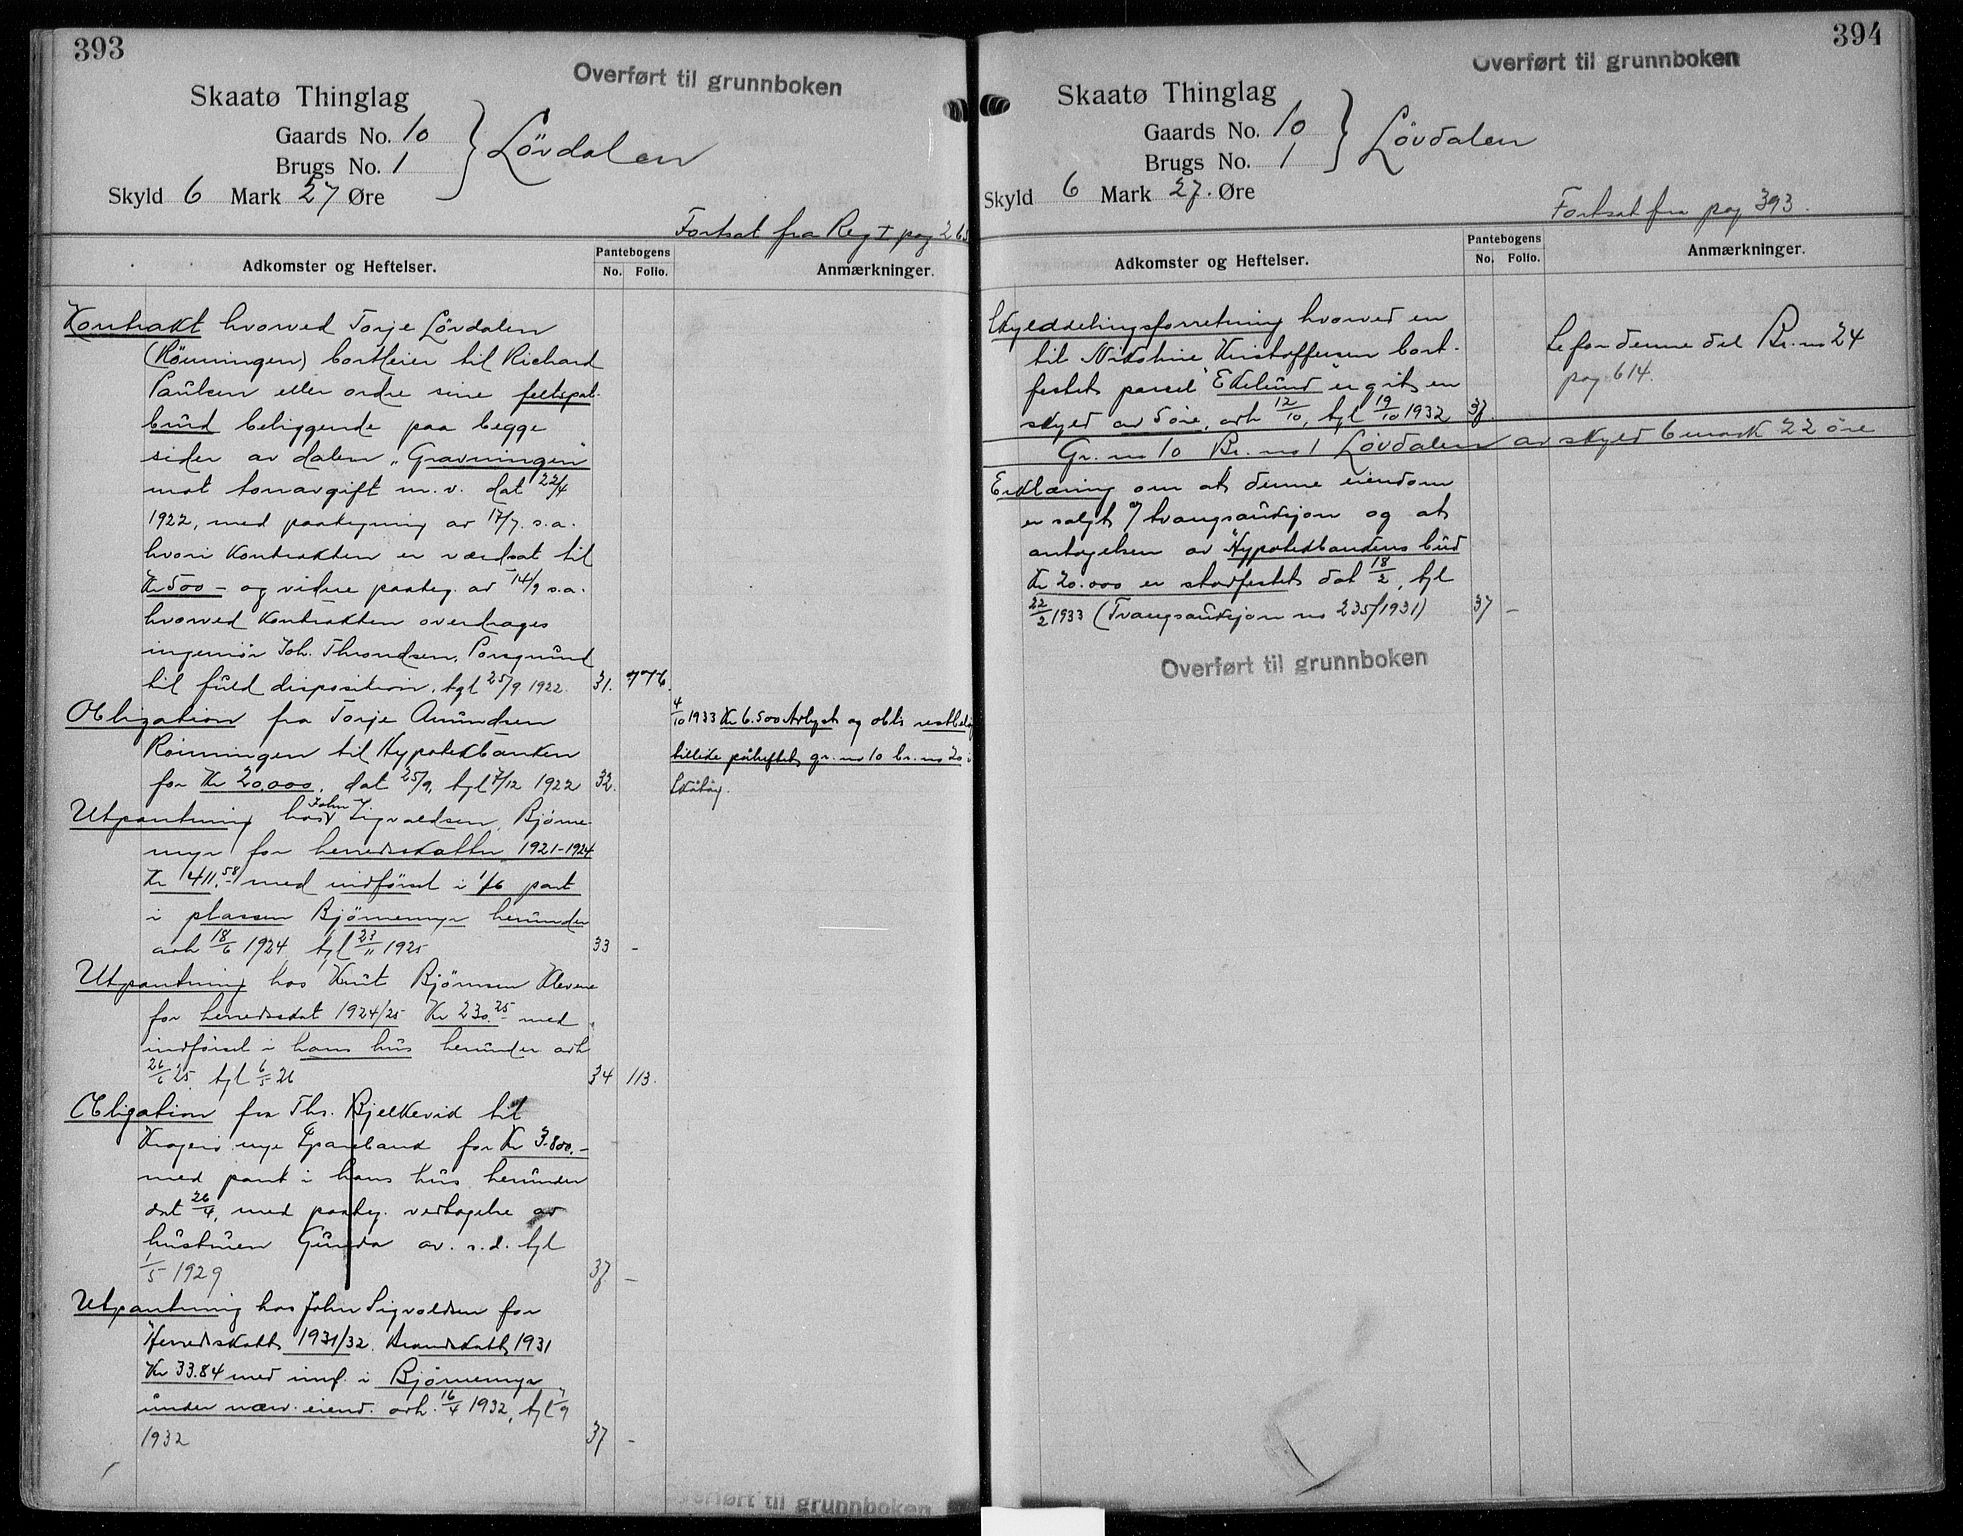 393
Overført til grunnboken
Skaatø Thinglag
Gaards No. 10
Brugs No. 1
Lövdalen
Skyld 6 Mark 27 Øre
Fortsat fra Reg I pag 265
Adkomster og Heftelser.
Pantebogens
No. Folio.
Anmærkninger.
Kontrakt hvorved Torje Lövdalen
(Rönningen) bortleier til Richard
Paulsen eller ordre sine feltspat-
brud beliggende paa begge
sider av dalen "Gravningen"
mot tonnavgift m.v. dat 22/4
1922, med paategning av 17/7 s.a.
hvori Kontrakten er værdsat til
Kr 500 - og videre paateg. av 14/9 s.a.
hvorved Kontrakten overdrages
ingeniör Joh. Throndsen, Porsgrund
til fuld disposition, tgl 25/9 1922. 31. 776.
Obligation fra Torje Amundsen
Rönningen til Hypotekbanken
for Kr 20.000, dat 25/9, tgl 7/12 1922 32.
4/10 1933 Kr 6.500 Avlyst og obls restbeløp
tillike påheftet gr. no 10 br. no 20 i
Skåtøy.
Utpantning hos John Sigvaldsen, Bjørne-
myr for herredsskatter 1921-1924
Kr 411.58 med indførsel i 1/6 part
i plassen Bjørnemyr herunder
avh 18/6 1924, tgl 23/11 1925 33 -
Utpantning hos Knut Bjørnsen Klevene
for herredsskat 1924/25 Kr 230.25 med
indførsel i hans hus herunder avh
26/6 25 tgl 6/5 26 34 113.
Obligation fra Ths. Bjelkevid til
Kragerö nye Sparebank for Kr 3.800.-
med pant i hans hus herunder
dat 26/4, med paateg. vedtagelse av
hustruen Gunda av s.d. tgl
1/5 1929 37 -
Utpantning hos John Sigvaldsen for
Herredsskatt 1931/32. Brandskatt 1931
Kr 33.84 med innf. i Bjørnemyr
under nærv. eiend. avh. 16/4 1932, tgl 7/9
1932 37 -
Overført til grunnboken
394
Overført til grunnboken
Skaatø Thinglag
Gaards No. 10
Brugs No. 1
Lövdalen
Skyld 6 Mark 27. Øre
Fortsat fra pag 393.
Adkomster og Heftelser.
Pantebogens
No. Folio.
Anmærkninger.
Skylddelingsforretning hvorved en
til Nikoline Kristoffersen bort-
festet parsel "Ekelund" er git en
skyld av 5 øre, avh 12/10, tgl 19/10 1932 37.
Se for denne del Br. no 24
pag 614.
Gr. no 10 Br. no 1 Lövdalen av skyld 6 mark 22 öre
Erklæring om at denne eiendom
er solgt v/ tvangsauksjon og at
antagelsen av Hypotekbankens bud
Kr 20.000 er stadfestet dat 18/2, tgl
22/2 1933 (Tvangsauksjon no 235/1931) 37 -
Overført til grunnboken